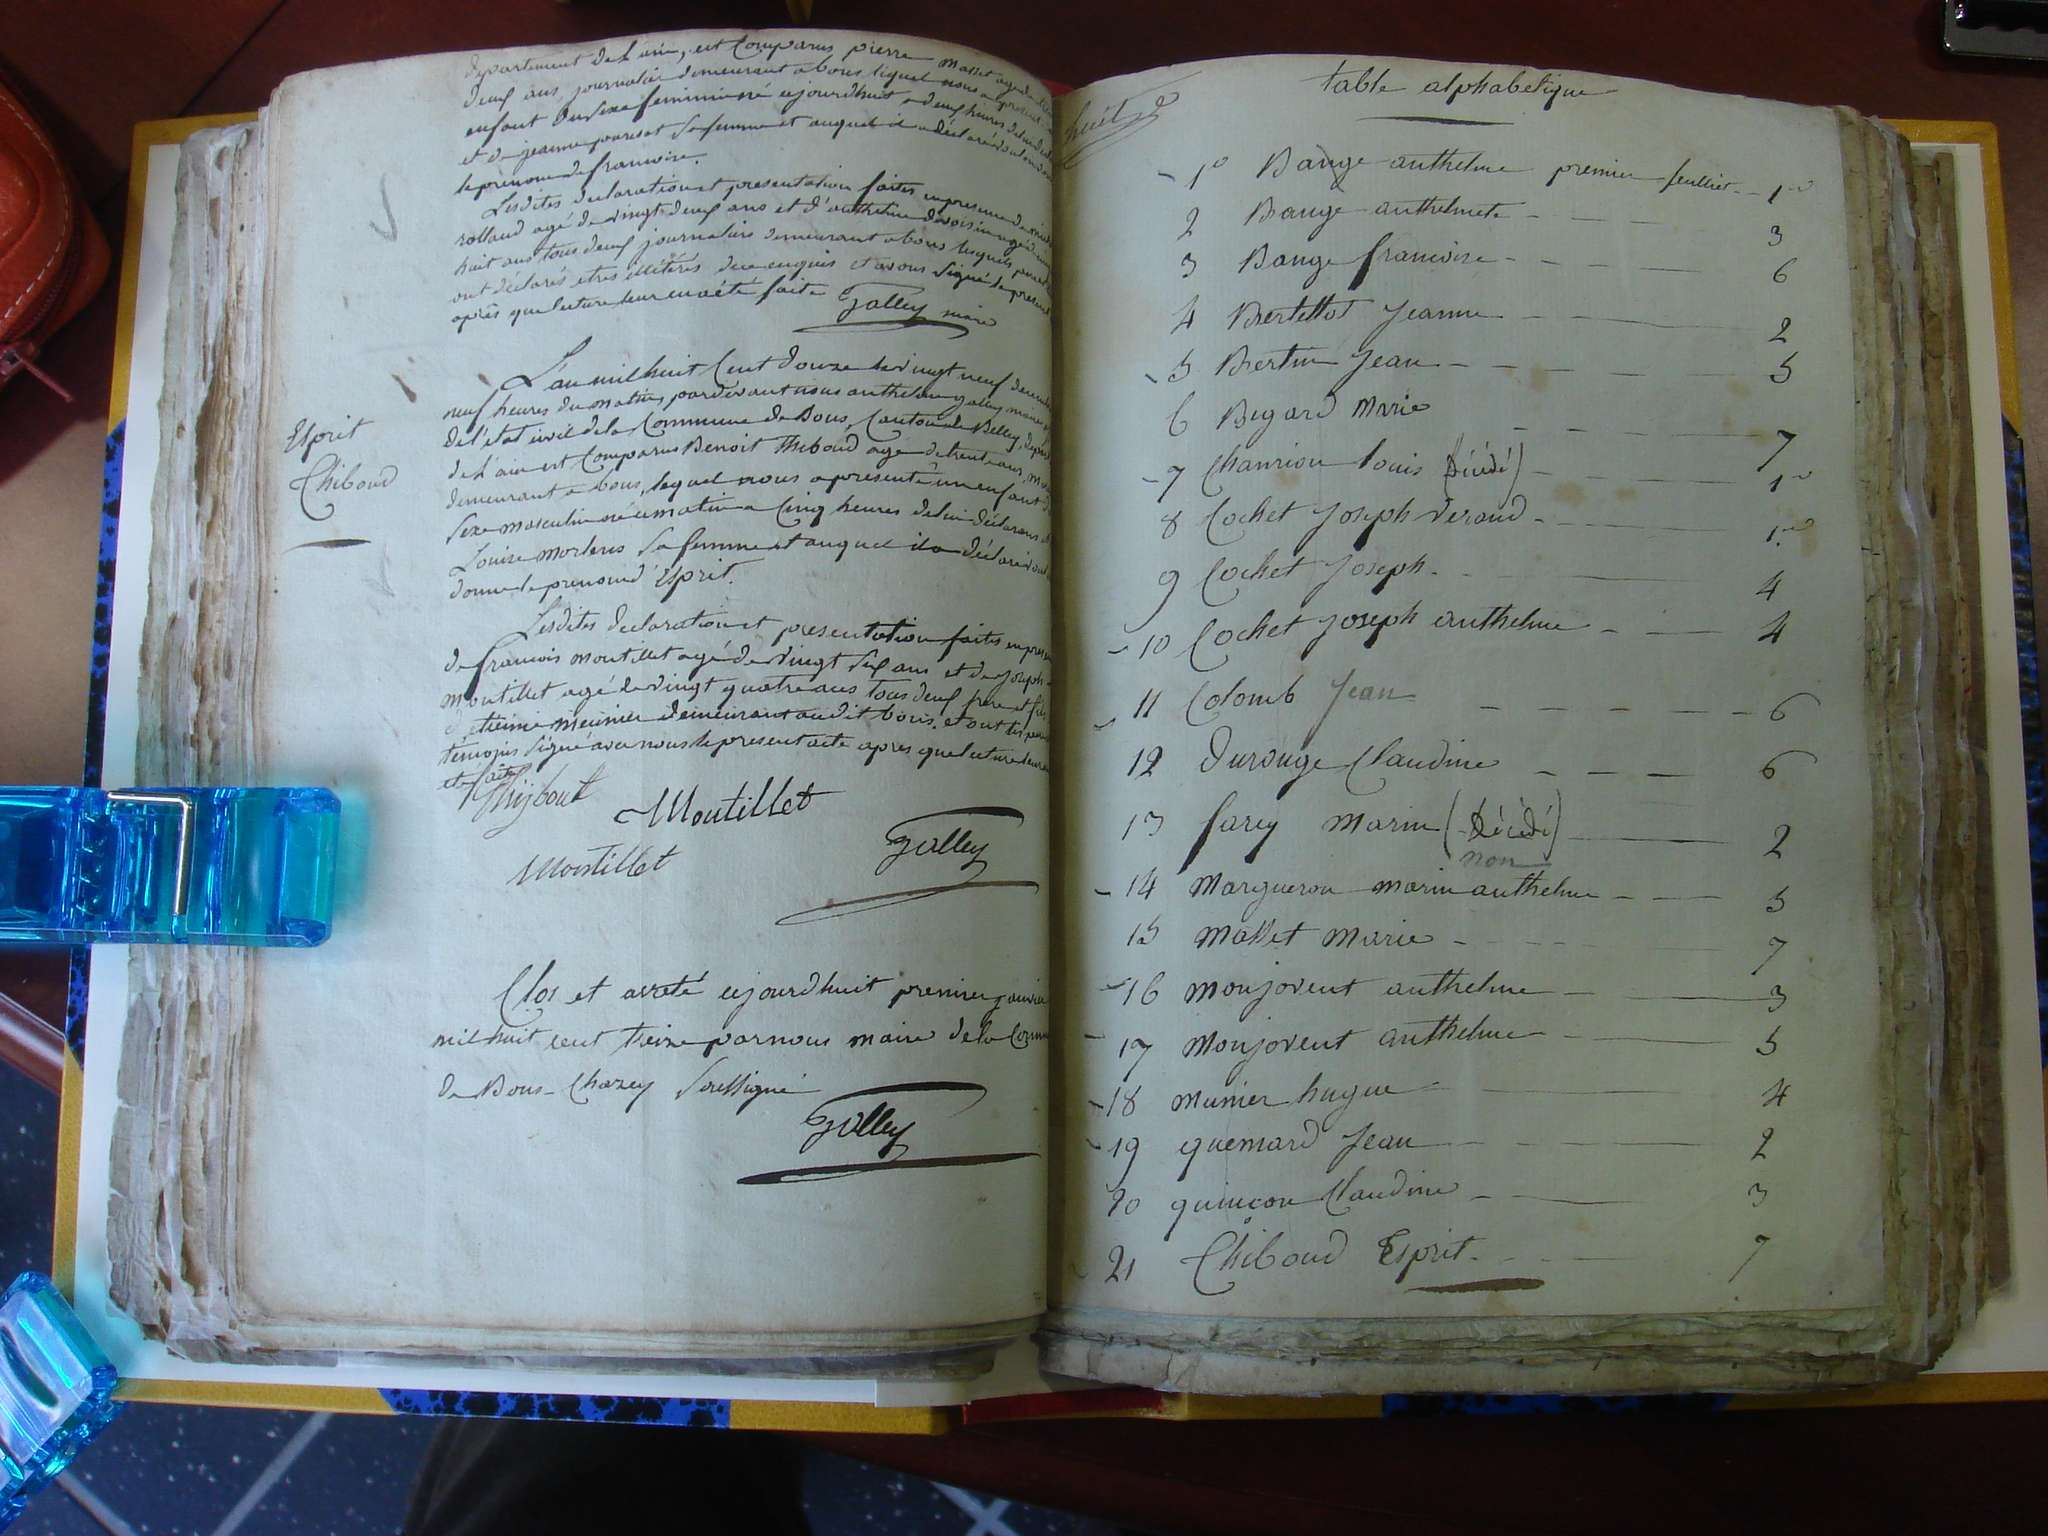 département de L'ain, est Comparus pierre Masset agé de
deux ans, journalier demeurant a bons lequel nous a présenté
enfant du Sexe feminin né cejourdhuit a deux heures
et de jeanne parisot Sa femme et auquel il a déclaré vouloir
le prenom de francoise.
Lesdites declaration et presentation faites en presence de
rolland agé de vingt deux ans et d'anthelme
huit ans tous deux journaliers demeurant a bons lesquels
ont déclarés etres illitérés de ce enquis et avons Signé le present
après que lecture leur en a été faite Galley maire
Esprit
Thiboud
L'an mil huit Cent douze le vingt neuf decembre
neuf heures du matin pardevant nous anthelme galley maire
de l'état civil de la Commune de Bons, Canton de Belley, depart
de L'ain est Comparus Benoit Thiboud agé de trente ans,
demeurant a bons, lequel nous a presenté un enfant
Sexe masculin né ce matin a Cinq heures de lui déclarant et
Louise Sa femme et auquel il a déclaré
donner le prenom d'Esprit.
Lesdites declaration et presentation faites en presen
de francois Montillet agé de vingt Six ans et de joseph
Montillet agé de vingt quatre ans tous deux frere et fils
d' meunier demeurant audit bons. et ont les
témoins Signé avec nous le present acte après que lecture leur
été faite
Thijbout
Montillet
Montillet
Galley
Clos et arreté cejourdhuit premier janvier
mil huit cent treize par nous maire de la Comm
de Bons-Chazey Soussigné
Galley
huit
table alphabetique
1º Bange anthelme premier feuillet 1er
2 Bange anthelmete 3
3 Bange francoise 6
4 Bertellot Jeanne 2
5 Bertin Jean 5
6 Begard Marie 7
7 Chanriou louis (décédé) 1er
8 Cochet Joseph Verand 1er
9 Cochet Joseph 4
10 Cochet Joseph anthelme 4
11 Colomb Jean 6
12 Durouge Claudine 6
13 farcy Marin (décédé) 2
non
14 Margueron marin anthelme 5
15 Masset Marie 7
16 Monjovent anthelme 3
17 Monjovent anthelme 5
18 Munier hugue 4
19 quemard Jean 2
20 quincon Claudine 3
21 Thiboud Esprit 7